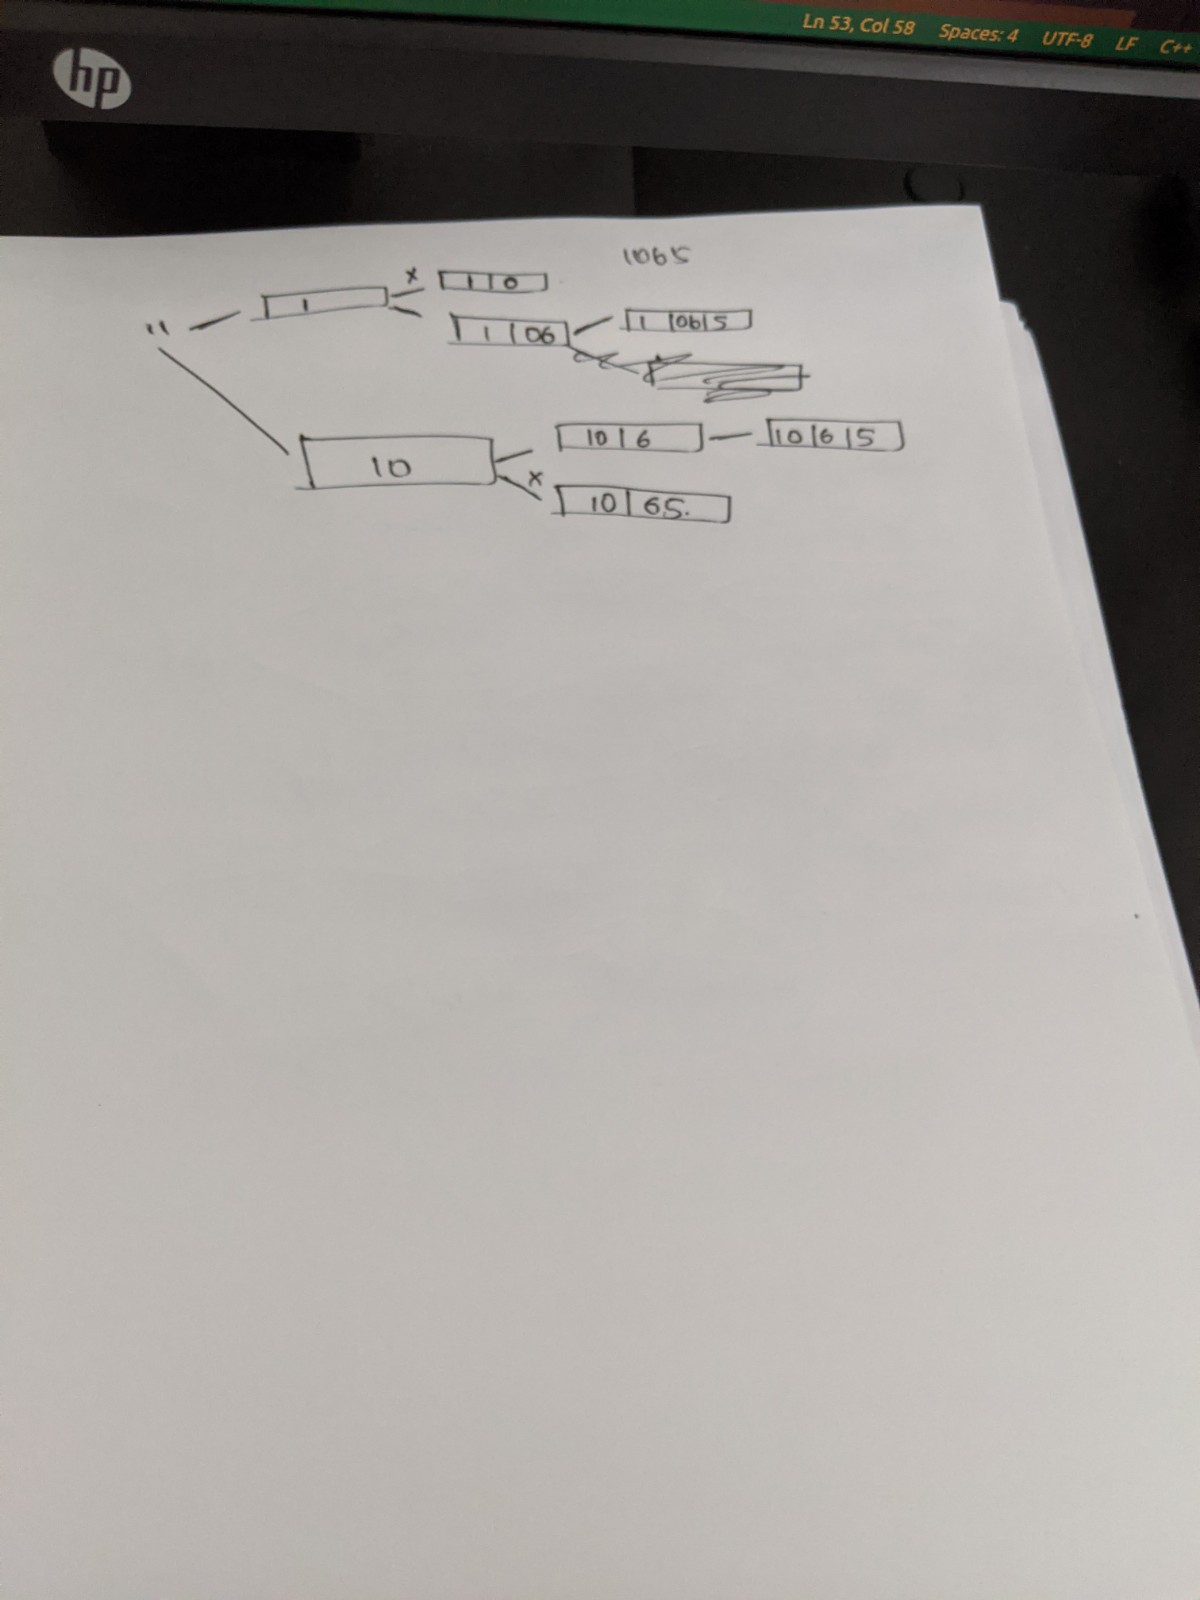 Ln 53, Col 58 Spaces: 4 UTF-8 LF C++
hp
1065
1 | 0
1
"
1 | 06
1 | 06 | 5
10 | 6
10 | 6 | 5
10
10 | 65.